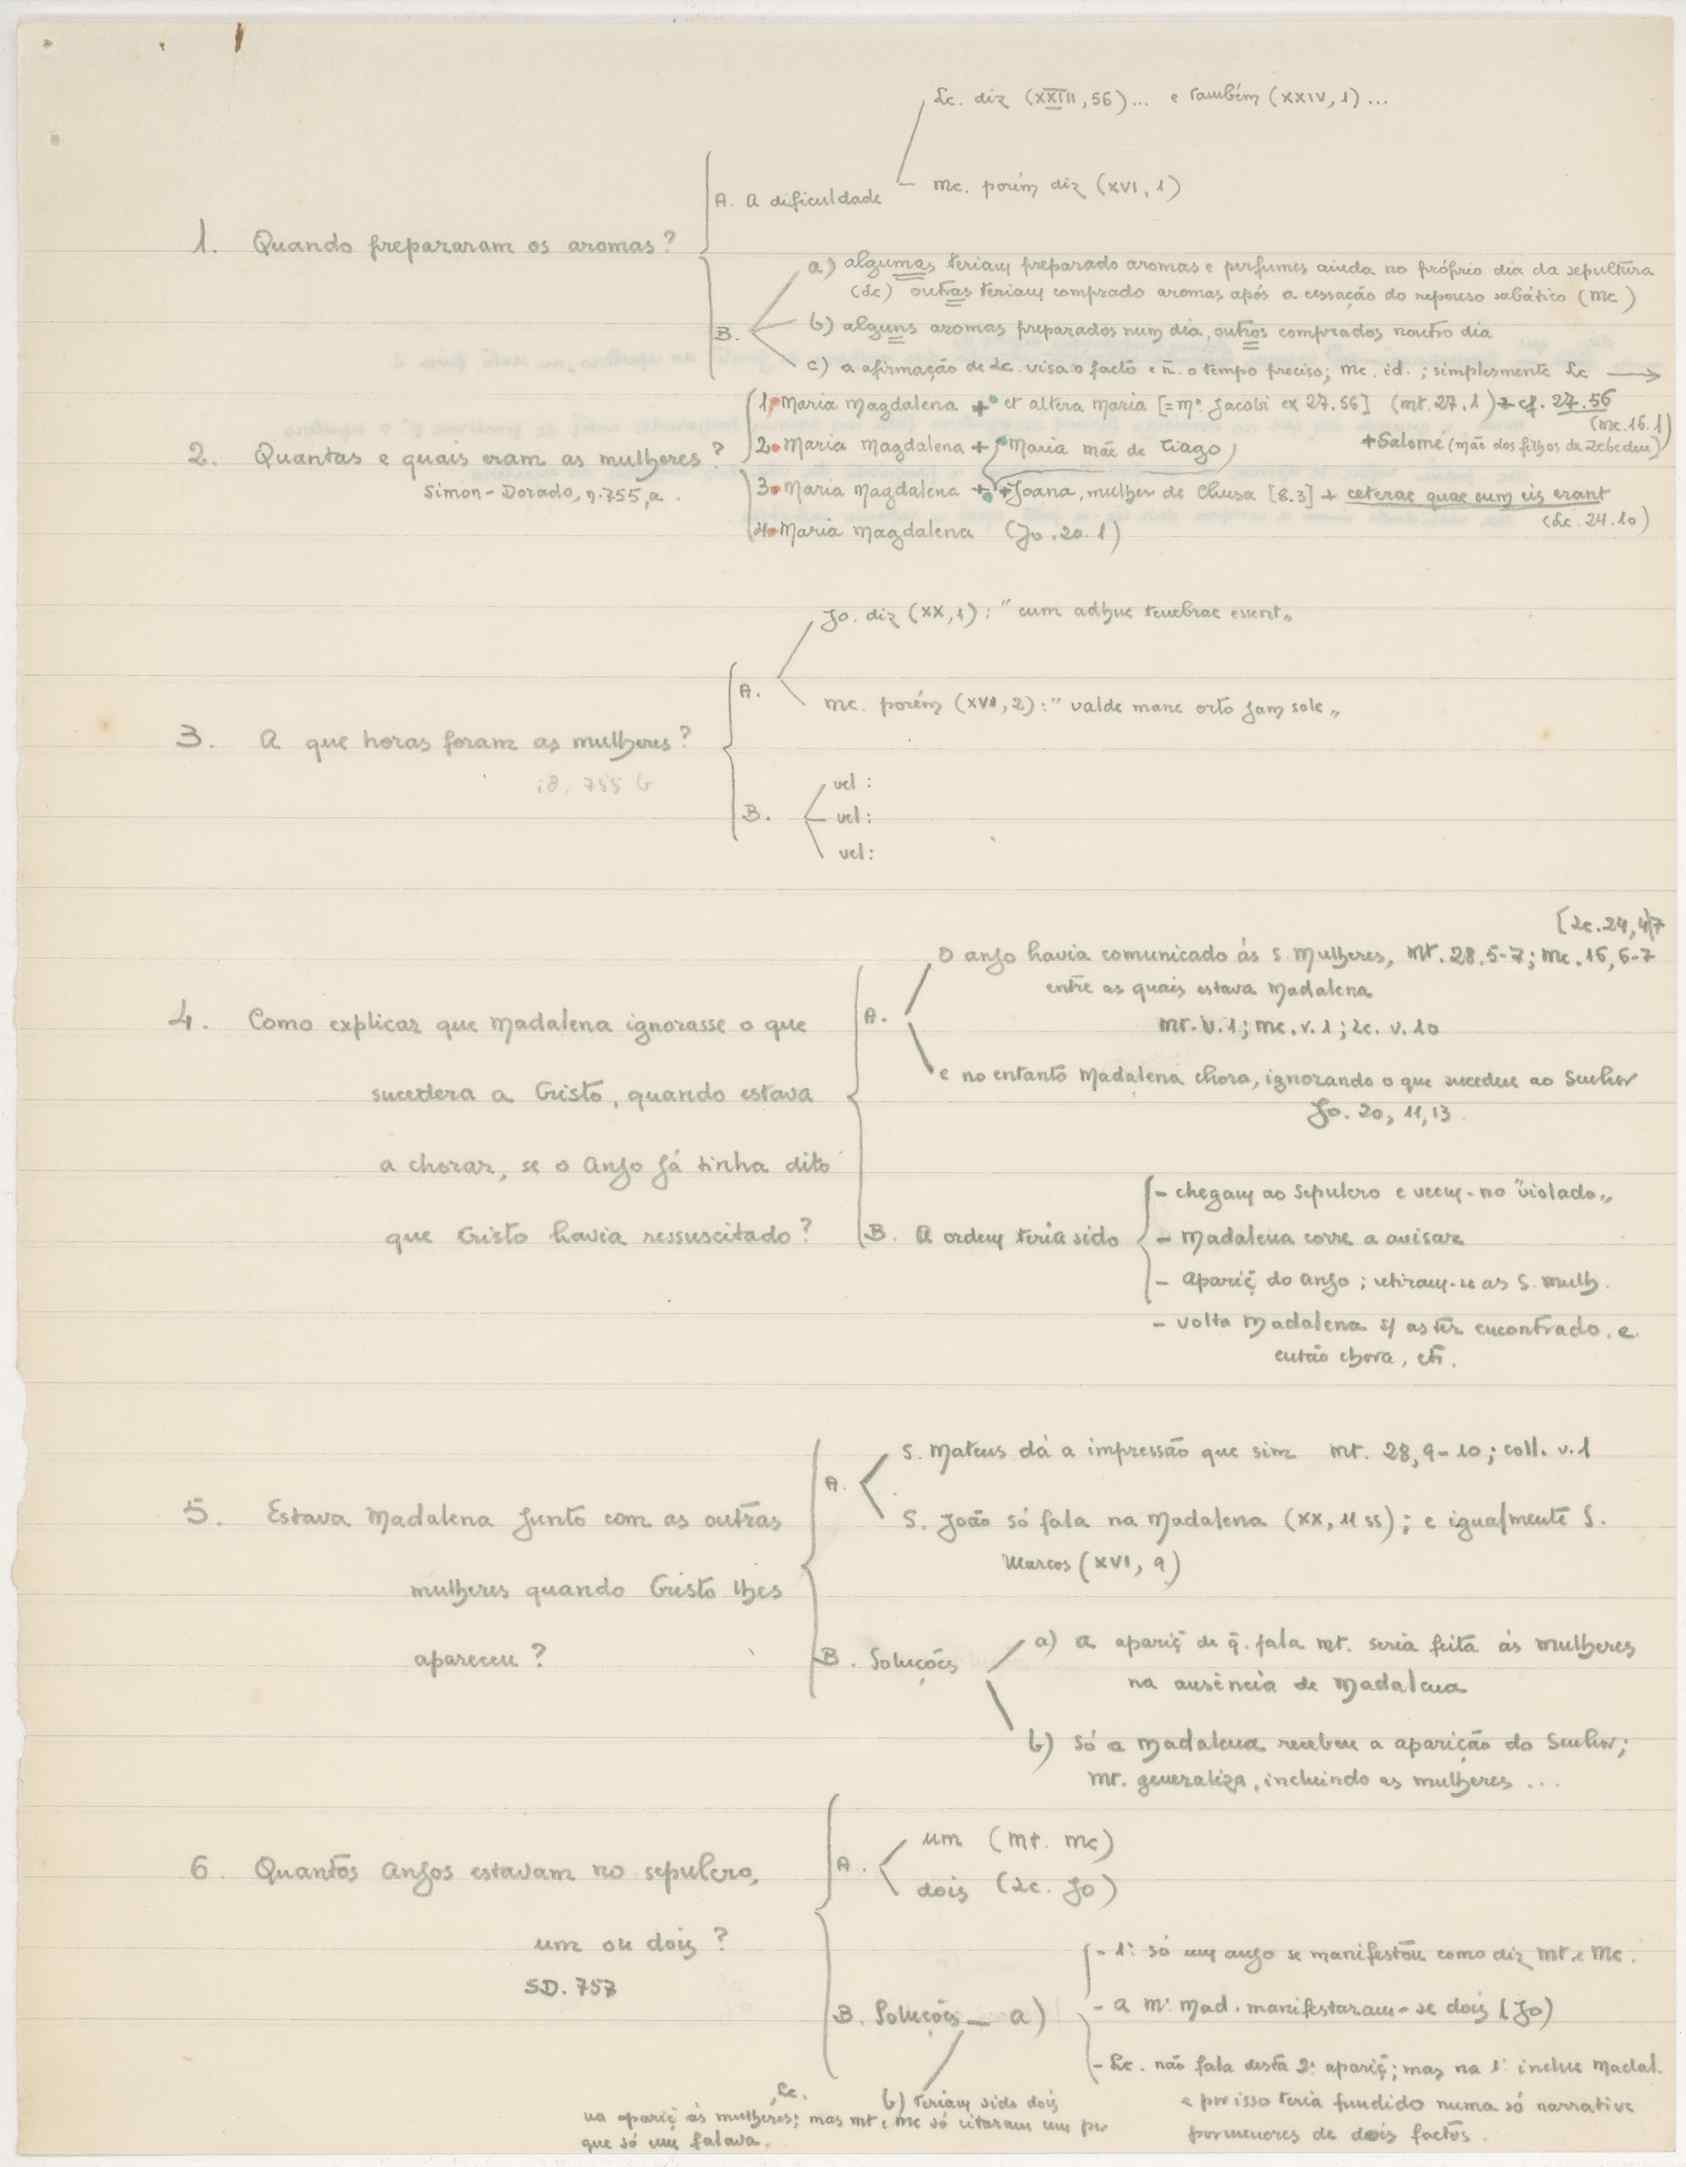 Lc. diz (XXIII, 56)... e também (XXIV, 1)...
A. A dificuldade
Mc. porém diz (XVI, 1)
1. Quando prepararam os aromas?
B.
a) algumas teriam preparado aromas e perfumes ainda no próprio dia da sepultura
(Lc) outras teriam comprado aromas após a cessação do repouso sabático (Mc)
b) alguns aromas preparados num dia, outros comprados noutro dia
c) a afirmação de Lc. visa o facto e ñ. o tempo preciso; Mc. id.; simplesmente Lc →
2. Quantas e quais eram as mulheres?
Simon-Dorado, n.755, a.
1. Maria Magdalena + et altera Maria [= Mª Jacobi ex 27.56] (Mt. 27.1) + cf. 27.56
(Mc. 16.1)
2. Maria Magdalena + Maria mãe de Tiago + Salome (mãe dos filhos de Zebedeu)
3. Maria Magdalena + + Joana, mulher de Chusa [8.3] + ceterae quae cum eis erant
(Lc. 24.10)
4. Maria Magdalena (Jo. 20. 1)
Jo. diz (XX, 1): "cum adhuc tenebrae essent„
A.
Mc. porém (XVI, 2): "valde mane orto jam sole„
3. A que horas foram as mulheres?
ib. 755 b
B.
vel:
vel:
vel:
[Lc. 24, 4]7
O anjo havia comunicado ás S. Mulheres, Mt. 28. 5-7; Mc. 16, 6-7
entre as quais estava Madalena
Mt. v. 1; Mc. v. 1; Lc. v. 10
A.
e no entanto Madalena chora, ignorando o que sucedeu ao Senhor
Jo. 20, 11, 13.
4. Como explicar que Madalena ignorasse o que
sucedera a Cristo, quando estava
a chorar, se o Anjo já tinha dito
que Cristo havia ressuscitado?
B. A ordem teria sido
- chegam ao Sepulcro e veem-no "violado„
- Madalena corre a avisar
- Apariç̃ do Anjo; retiram-se as S. Mulh.
- volta Madalena s/ as ter encontrado. e
então chora, etc.
S. Mateus dá a impressão que sim Mt. 28, 9-10; coll. v. 1
A.
S. João só fala na Madalena (XX, 11 ss); e igualmente S.
Marcos (XVI, 9)
5. Estava Madalena junto com as outras
mulheres quando Cristo lhes
apareceu?
B. Soluções
a) a apariç̃ de q̃. fala Mt. seria feita ás mulheres
na ausência de Madalena
b) só a Madalena recebeu a aparição do Senhor;
Mt. generaliza, incluindo as mulheres ...
um (Mt. Mc)
A.
dois (Lc. Jo)
6. Quantos Anjos estavam no sepulcro,
um ou dois?
SD. 757
B. Soluções - a)
- 1º: só um anjo se manifestou como diz Mt. e Mc.
- a Mª Mad. manifestaram-se dois (Jo)
- Lc. não fala desta 2ª apariç̃; mas na 1ª inclue Madal.
e por isso teria fundido numa só narrativa
pormenores de dois factos.
b) teriam sido dois
Lc.
na apariç̃ ás mulheres; mas Mt e Mc só citaram um por
que só um falava.